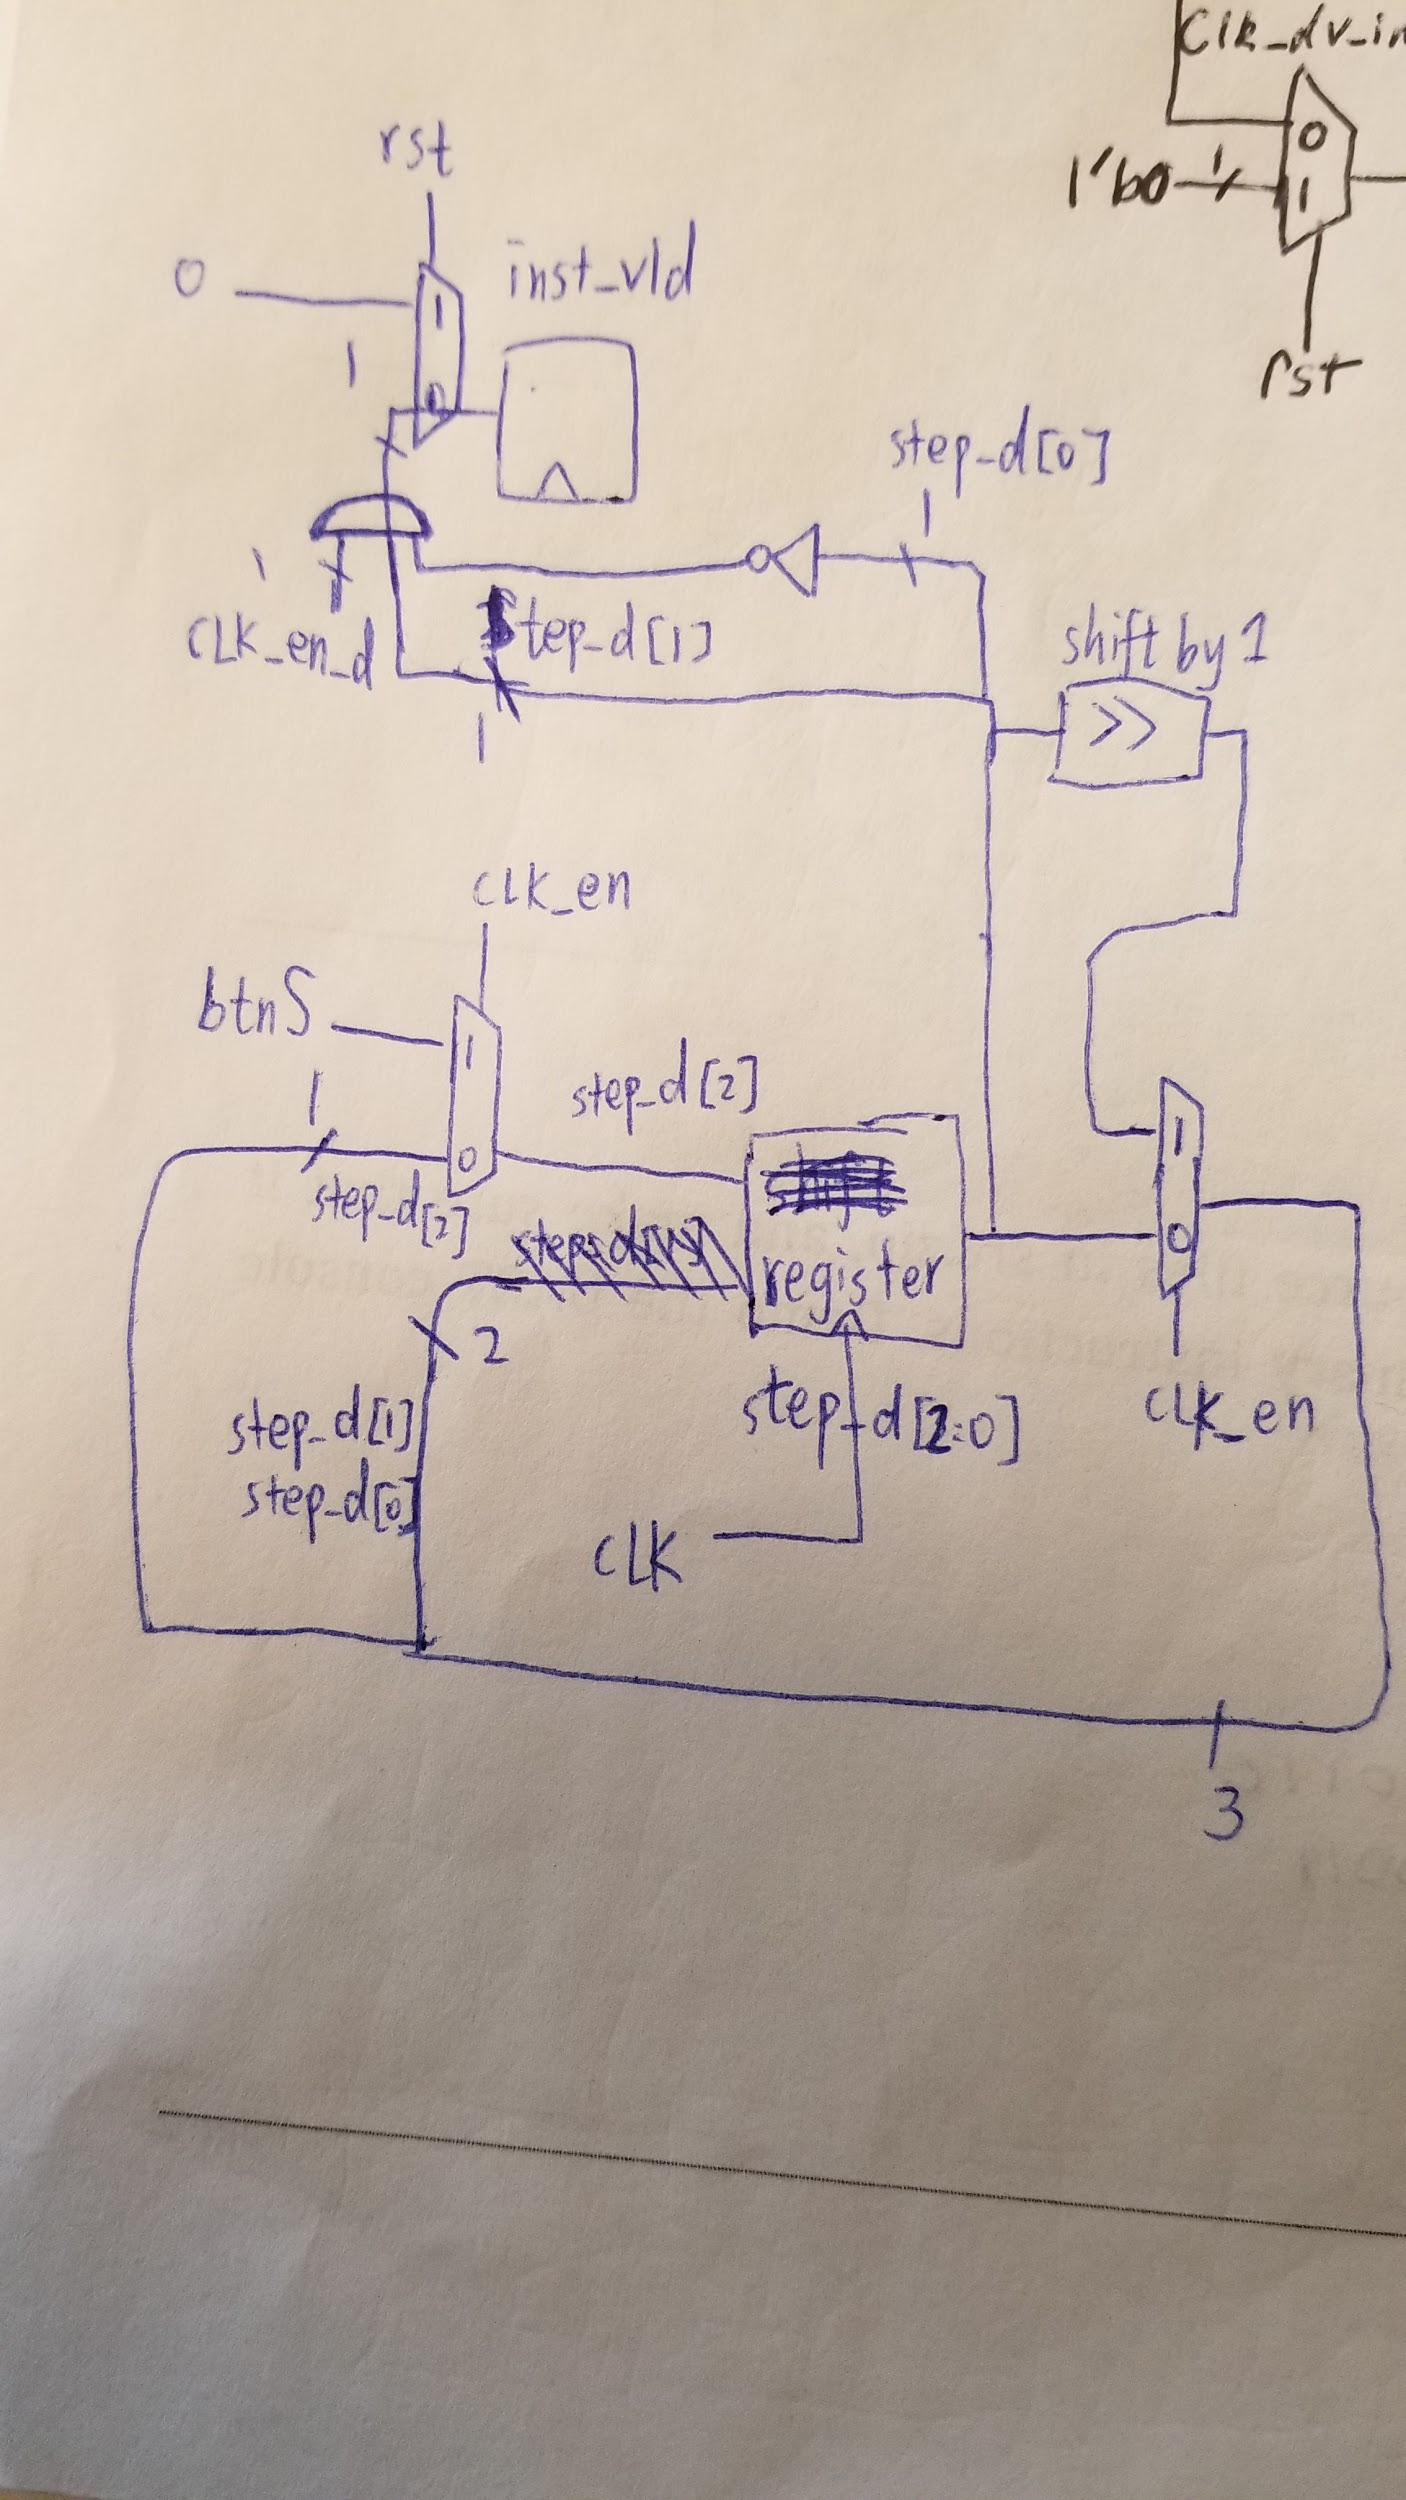 clk_dv_in
0
1
1'b0
1
rst
rst
0
1
inst_vld
1
0
step_d[0]
1
1
CLK_en_d
step_d[1]
1
shift by 1
>>
CLK_en
btnS
1
1
0
step_d[2]
step_d[2]
register
2
step_d[1]
step_d[0]
step_d[2:0]
CLK
1
0
CLK_en
3